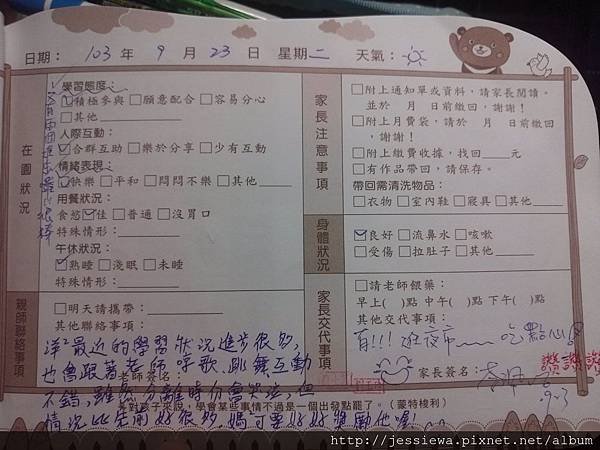 日期： 103 年 9 月 23 日 星期二 天氣：
在園狀況
學習態度：
☑積極參與 □願意配合 □容易分心
□其他
人際互動：
☑合群互助 □樂於分享 □少有互動
情緒表現：
☑快樂 □平和 □悶悶不樂 □其他
用餐狀況：
食慾☑佳 □普通 □沒胃口
特殊情形：
午休狀況：
☑熟睡 □淺眠 □未睡
特殊情形：
親師聯絡事項
□明天請攜帶：
其他聯絡事項：
洋洋最近的學習狀況進步很多，
也會跟著老師唱歌、跳舞互動
不錯，雖然分離時仍會哭泣，但
情況比先前好很多，媽可要好好獎勵他喔！
老師簽名：
家長注意事項
□附上通知單或資料，請家長閱讀。
並於 月 日前繳回，謝謝！
□附上月費袋，請於 月 日前繳回
，謝謝！
□附上繳費收據，找回 元
□有作品帶回，請保存。
帶回需清洗物品：
□衣物 □室內鞋 □寢具 □其他
身體狀況
☑良好 □流鼻水 □咳嗽
□受傷 □拉肚子 □其他
家長交代事項
□請老師餵藥：
早上( )點 中午( )點 下午( )點
其他交代事項：
有!!! 逛夜市~~~ 吃點心
家長簽名：
讚讚讚
對孩子來說，學會某些事情不過是一個出發點罷了。（蒙特梭利）
http://jessiewa.pixnet.net/album